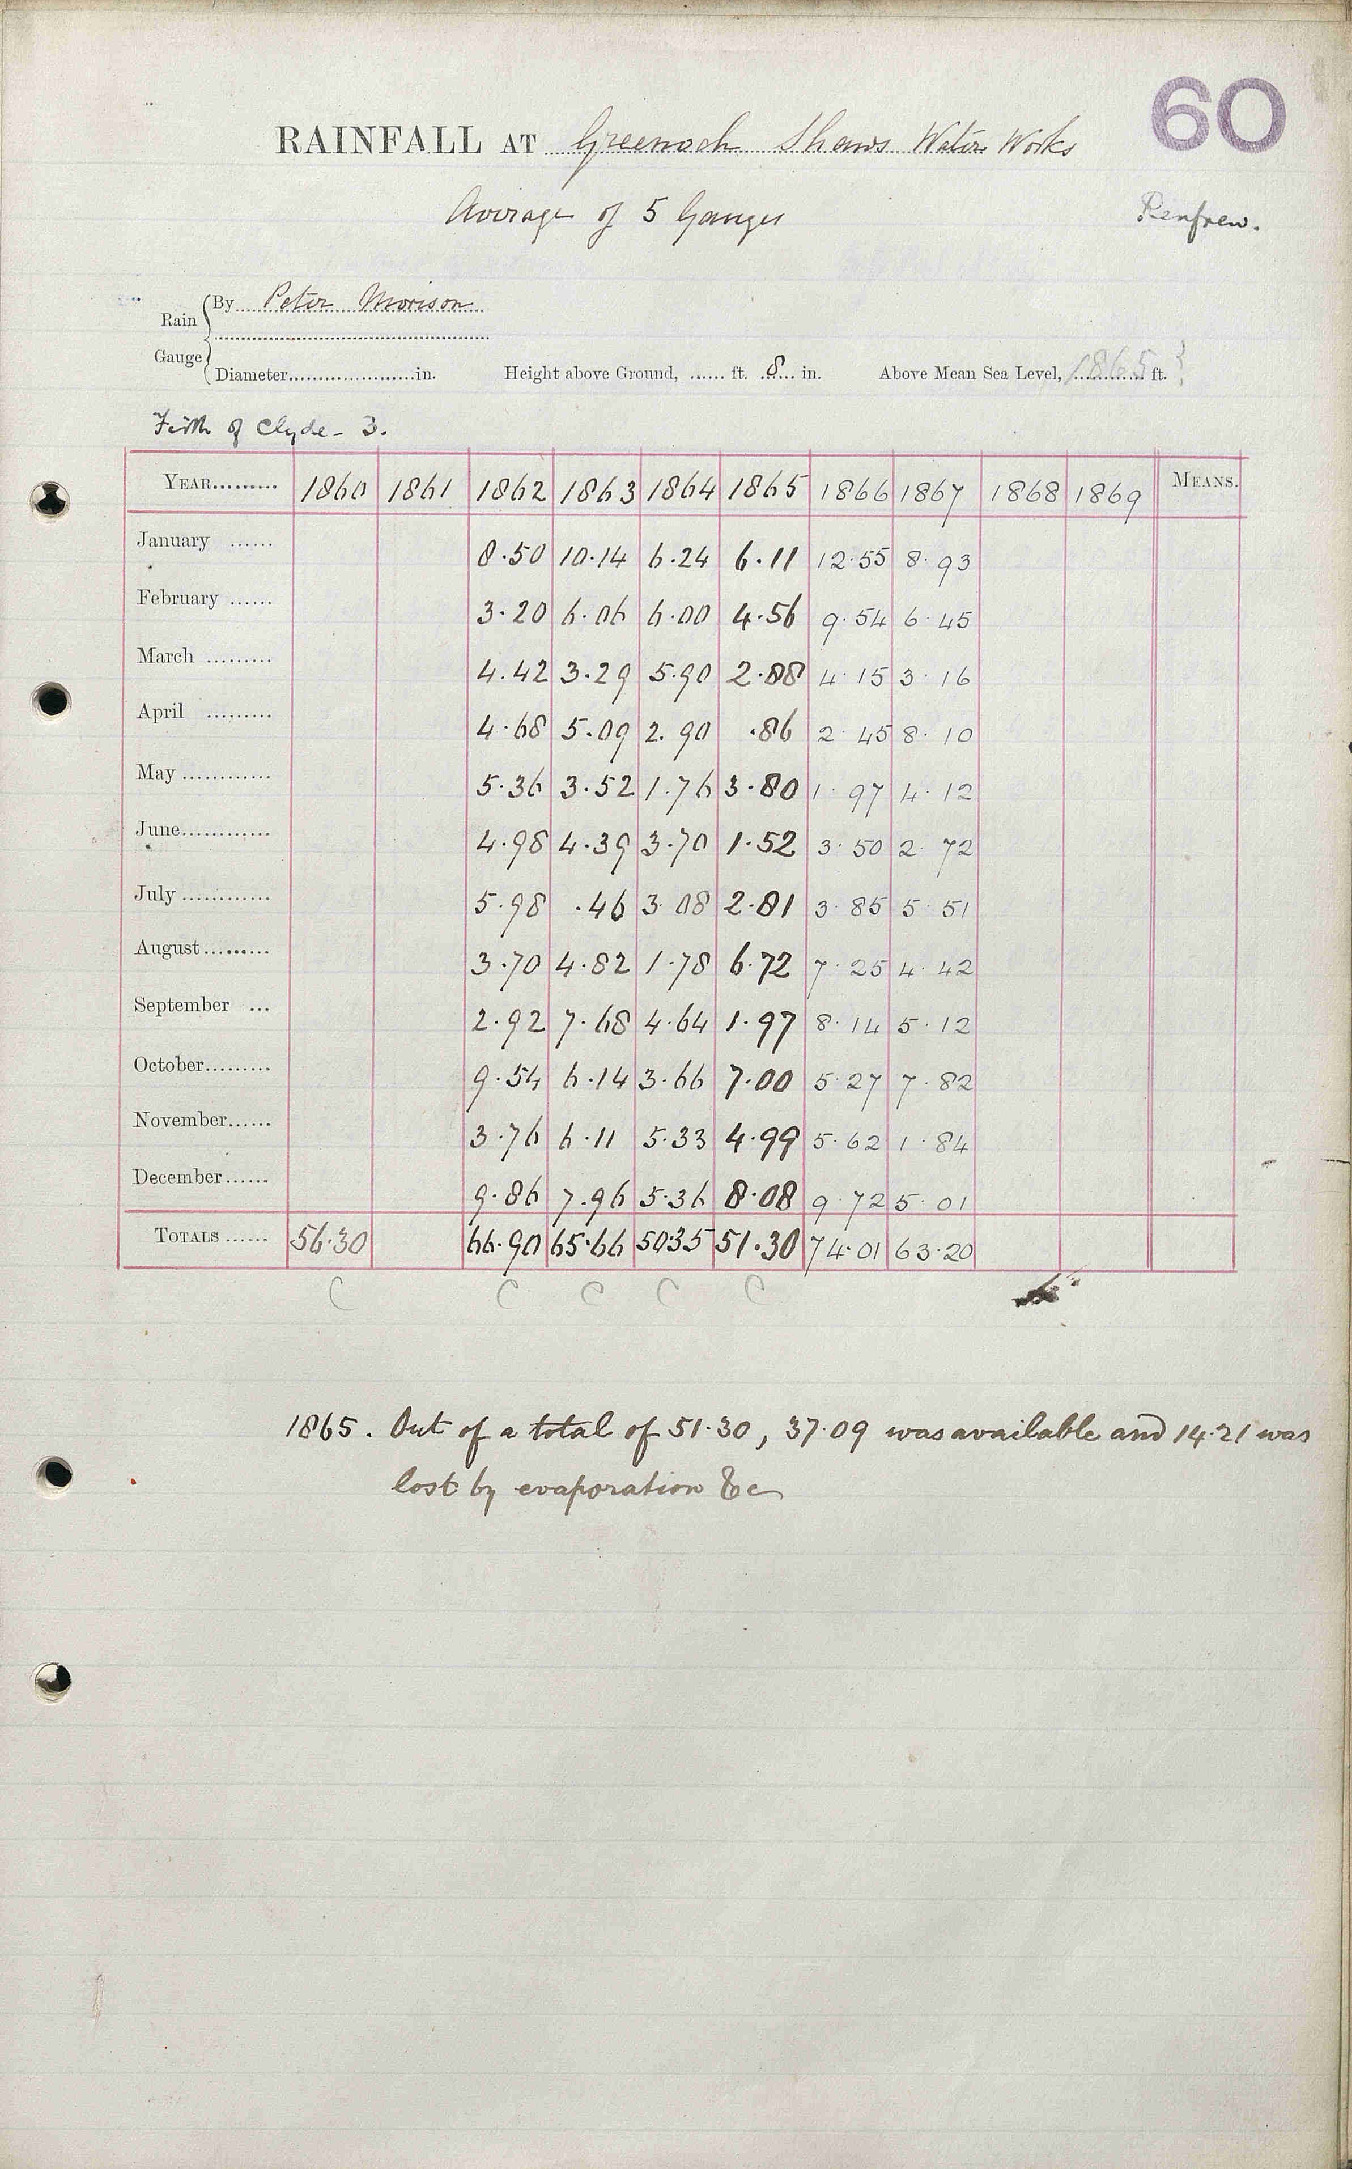 60
RAINFALL AT Greenock Shaws Water Works
Average of 5 Gauges
Renfrew.
Rain Gauge { By Peter Morison
Diameter....................in. Height above Ground, ...... ft. 8 in. Above Mean Sea Level, 1865 ft.
Firth of Clyde - 3.
YEAR......... 1860 1861 1862 1863 1864 1865 1866 1867 1868 1869 MEANS.
January ...... 8.50 10.14 6.24 6.11 12.55 8.93
February ...... 3.20 6.06 6.00 4.56 9.54 6.45
March ......... 4.42 3.29 5.90 2.88 4.15 3.16
April ......... 4.68 5.09 2.90 .86 2.45 8.10
May ............ 5.36 3.52 1.76 3.80 1.97 4.12
June............ 4.98 4.39 3.70 1.52 3.50 2.72
July ............ 5.98 .46 3.08 2.81 3.85 5.51
August......... 3.70 4.82 1.78 6.72 7.25 4.42
September ... 2.92 7.68 4.64 1.97 8.14 5.12
October......... 9.54 6.14 3.66 7.00 5.27 7.82
November...... 3.76 6.11 5.33 4.99 5.62 1.84
December...... 9.86 7.96 5.36 8.08 9.72 5.01
TOTALS ...... 56.30 66.90 65.66 50.35 51.30 74.01 63.20
C C C C C
1865. Out of a total of 51.30, 37.09 was available and 14.21 was
lost by evaporation &c